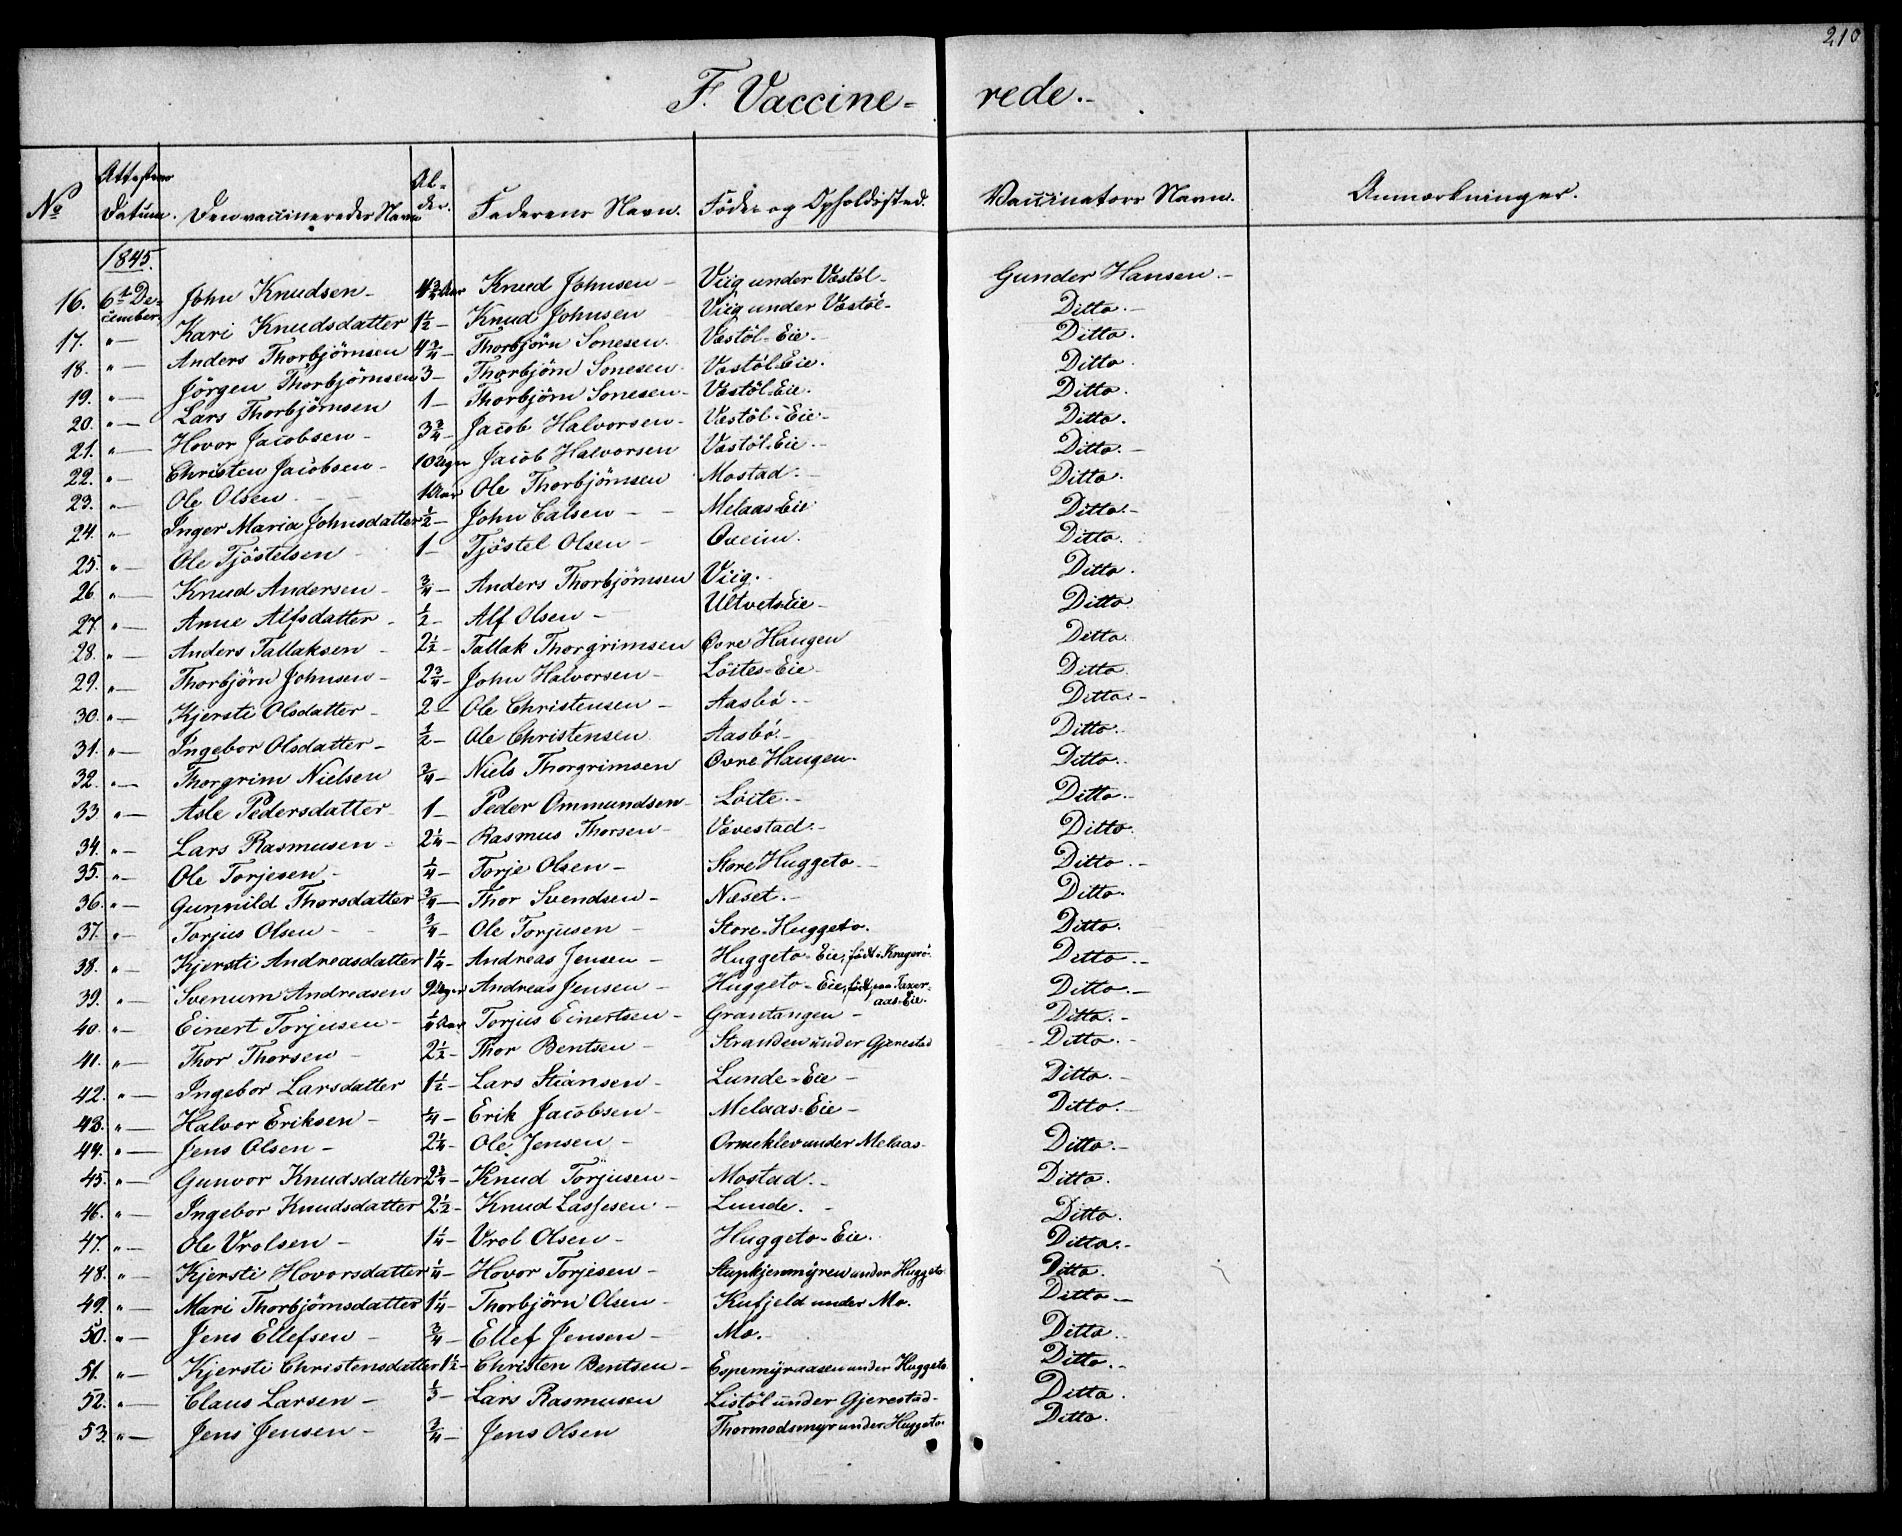 210
F. Vaccine- rede.-
No Attestens Datum. Den vaccineredes Navn Al-der. Faderens Navn. Føde- og Opholdssted. Vaccinators Navn. Anmærkninger.
1845.
16. 6te December. John Knudsen - 4 3/4 Aar Knud Johnsen - Viig under Vestøl - Gunder Hansen.-
17. " - Kari Knudsdatter 1 1/2 - Knud Johnsen Viig under Vestøl - Ditto.-
18. " - Anders Thorbjørnsen 4 3/4 - Thorbjørn Sonesen. Vestøl-Eie.- Ditto.
19. " - Jörgen Thorbjørnsen 3 - Thorbjørn Sonesen. Vestøl-Eie. Ditto.
20. " - Lars Thorbjørnsen 1 - Thorbjørn Sonesen - Vestøl-Eie. Ditto.
21. " - Hovor Jacobsen - 3 3/4 - Jacob Halvorsen - Vestøl-Eie - Ditto.
22. " - Christen Jacobsen - 10 Uger Jacob Halvorsen Vestøl-Eie.- Ditto.-
23. " - Ole Olsen. - 1 Aar Ole Thorbjørnsen Mostad.- Ditto.
24. " - Inger Maria Johnsdatter 1/2 - John Calsen - Melaas-Eie Ditto.-
25. " - Ole Tjöstelsen - 1 - Tjöstel Olsen - Qveim. Ditto.
26. " - Knud Andersen - 3/4 - Anders Thorbjørnsen Viig. Ditto.
27. " - Anne Alfsdatter - 1/2 - Alf Olsen - Ultvets-Eie - Ditto
28. " - Anders Tallaksen - 2 1/2 - Tallak Thorgrimsen Øvre Haugen Ditto.
29. " - Thorbjörn Johnsen - 2 3/4 - John Halvorsen - Löites-Eie. Ditto.
30. " - Kjersti Olsdatter - 2 - Ole Christensen - Aasbö.- Ditto.-
31. " - Ingebor Olsdatter - 1/2 - Ole Christensen Aasbö.- Ditto.
32. " - Thorgrim Nielsen 3/4 - Niels Thorgrimsen Øvre Haugen. Ditto.
33 " - Asle Pedersdatter 1 - Peder Ommundsen - Löite.- Ditto.-
34. " - Lars Rasmusen - 2 1/4 - Rasmus Thorsen - Vevestad.- Ditto.
35. " - Ole Torjesen - 1/4 - Torje Olsen - Store Huggeto - Ditto.-
36. " - Gunnild Thorsdatter 3/4 - Thor Svendsen - Næset.- Ditto.
37. " - Torjus Olsen - 3/4 - Ole Torjusen - Store-Huggeto. Ditto.
38. " - Kjersti Andreasdatter 1 1/4 - Andreas Jensen - Huggeto-Eie, født i Kragerö. Ditto.-
39. " - Svenum Andreasen 9 Uger Andreas Jensen - Huggeto-Eie, født paa aas-Eie. Ditto.-
40. " - Einert Torjusen - 1/4 Aar Torjus Einertsen - Grantangen - Ditto.-
41. " - Thor Thorsen - 2 1/2 - Thor Bentsen - Stranden under Gjerestad Ditto.-
42. " - Ingebor Larsdatter 1 1/2 - Lars Stiansen - Lunde-Eie - Ditto.-
43. " - Halvor Eriksen - 1/4 - Erik Jacobsen - Melaas-Eie - Ditto.-
44. " - Jens Olsen - 2 1/4 - Ole Jensen - Ormeklev under Melaas- Ditto.-
45. " - Gunvor Knudsdatter 2 3/4 - Knud Torjusen - Mostad.- Ditto.
46. " - Ingebor Knudsdatter 2 1/2 - Knud Lassesen - Lunde. - Ditto.
47. " - Ole Vrolsen - 1 1/4 - Vrol Olsen - Huggeto-Eie. Ditto.-
48. " - Kjersti Hovorsdatter 1/4 - Hovor Torjesen - Stupkjenmyren under Huggeto Ditto.
49. " - Mari Thorbjørnsdatter 1 1/4 - Thorbjörn Olsen - Kufjeld under Mo. Ditto.-
50. " - Jens Ellefsen - 3/4 - Ellef Jensen - Mo.- Ditto.-
51. " - Kjersti Christensdatter 1 1/2 - Christen Bentsen - Espemyraasen under Huggeto Ditto.-
52. " - Claus Larsen - 1/3 - Lars Rasmusen Listöl under Gjerestad- Ditto.
53. " - Jens Jensen - 3/4 - Jens Olsen Thormodsmyr under Huggeto. Ditto.